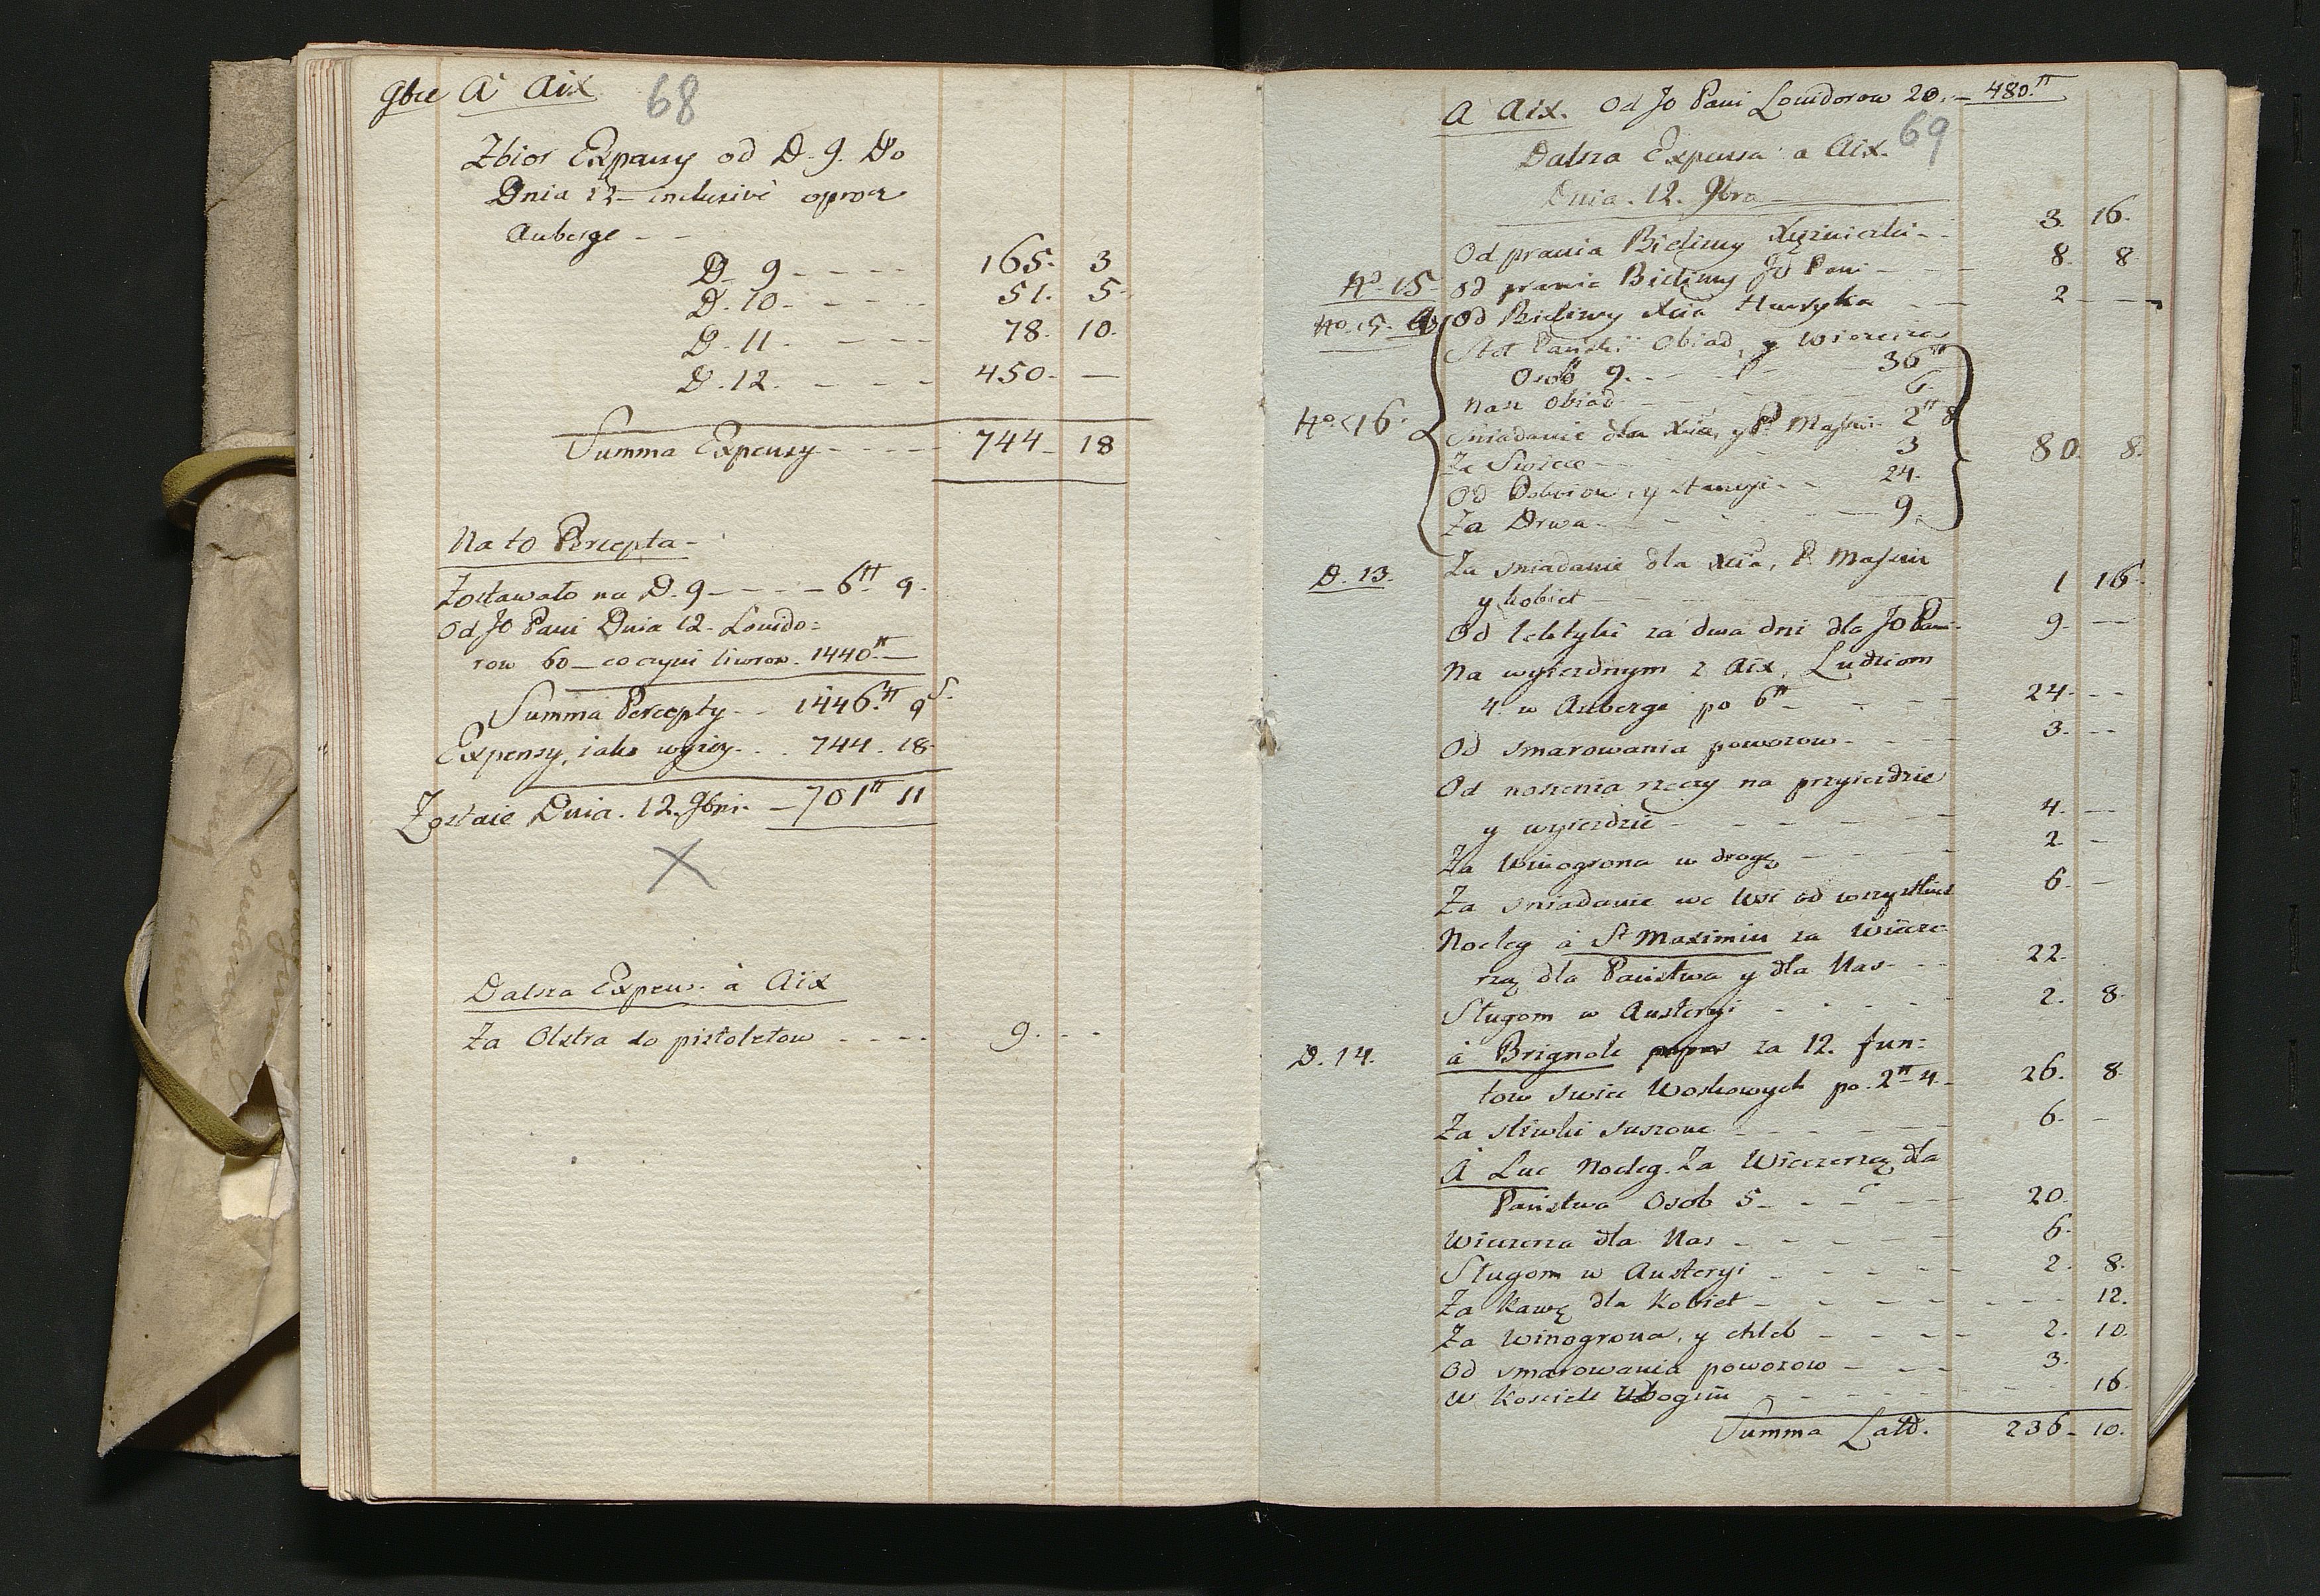 9bre A Aix
68
Zbior Expensy od D. 9. Do
Dnia 12 inclusivè oprocz
Auberge - -
D. 9 - - - - 165. 3
D. 10. - - - - 51. 5.
D. 11. - - - - 78. 10.
D. 12. - - - - 450. —
Summa Expensy - - - - 744 - 18
Na to Percepta -
Zostawało na D. 9 - - - - 6ᵗᵗ 9.
Od JO Pani Dnia 12. Louido-
row 60 - co czyni liwrow. 1440ᵗᵗ
Summa Percepty - - 1446.ᵗᵗ 9 s.
Expensy, iako wyżey. . . 744. 18.
Zostaie Dnia. 12. 9bris. - 701ᵗᵗ 11
Dalsza Expens. à Aix
Za Olstra do pistoletow - - - - 9. - -
A Aix. Od JO Pani Louidorow 20. - 480.ᵗᵗ
69
Dalsza Expensa a Aix.
Dnia. 12. 9bra
Od prania Bielizny Xiężniczki - - 3. 16.
Nº. 15. Od prania Bielizny JO Pani - - - 8. 8
Nº. 15. Od Bielizny Xcia Henryka - - 2 - —
Stoł Pański Obiad, y Wieczerza
Osób 9. - - 36ᵗᵗ
Nasz Obiad - - 6.
Nº. 16. Sniadanie dla Xcia, y P. 2ᵗᵗ 8
Za Swiece - - 3 80. 8.
Od Pokoiow, y Stancyi - - 24.
Za Drwa - - 9.
D. 13. Za sniadanie dla Xcia, P.
y kobiet - - 1 16.
Od lektyki za dwa dni dla JO Pani - 9. —
Na wyiezdnym z Aix, Ludziom
4. w Auberge po 6ᵗᵗ - - - 24. - -
Od smarowania powozow - - - 3. - -
Od noszenia rzeczy na przyiezdzie
y wyiezdzie - - - - 4. —
Za Winogrona w drogę - - - 2. —
Za sniadanie we Wsi od wszystkich 6. —
Nocleg à St Maximin za Wiecze-
rzą dla Państwa y dla Nas - - - 22.
Sługom w Austeryi - - - - 2. 8.
D. 14. à Brignole za 12. fun-
tow swiec Woskowych po. 2ᵗᵗ 4. - 26. 8
Za sliwki suszone - - - - 6. —
A Luc Nocleg. Za Wieczerzą dla
Państwa Osób 5 - - - - 20.
Wieczerza dla Nas - - - - 6.
Sługom w Austeryi - - - - 2. 8.
Za Kawę dla Kobiet - - - - 12.
Za Winogrona, y chleb - - - - 2. 10.
Od smarowania powozow - - - 3.
W Kosciele Ubogim - - - - 16
Summa Latd. 236 - 10.